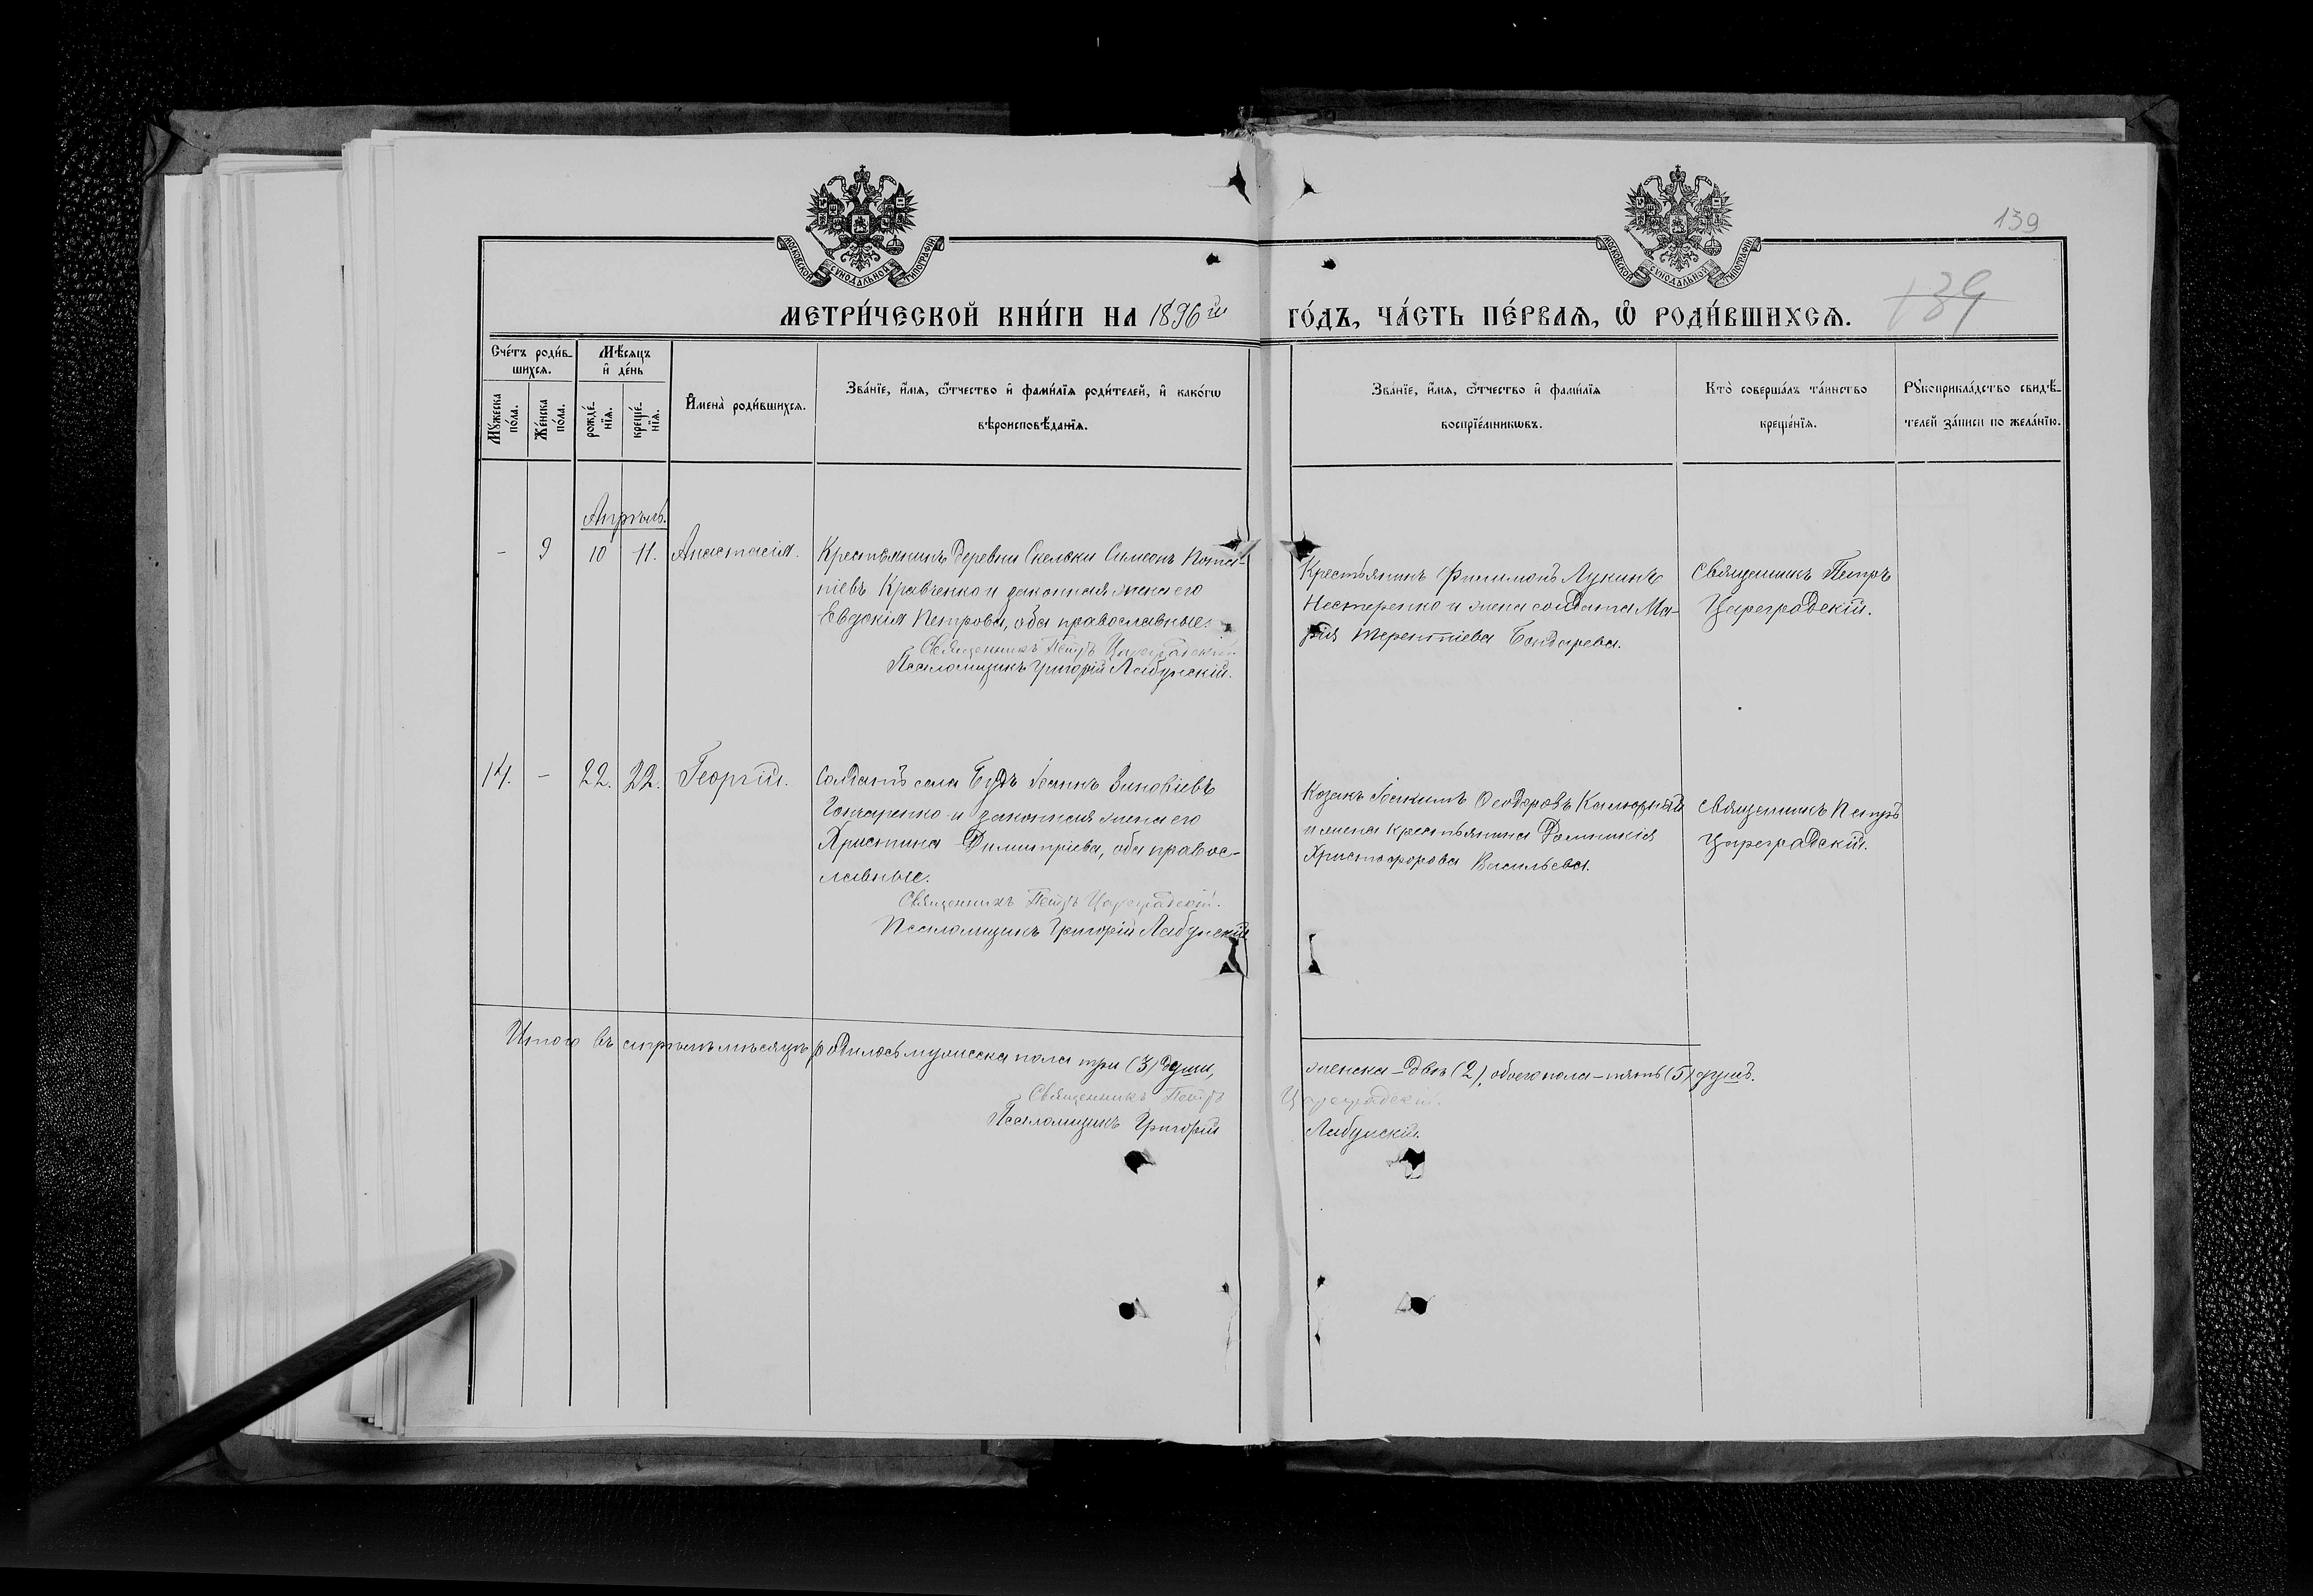 139
139
МОСКОВСКОЙ СѴНОДАЛЬНОЙ ТИПОГРАФІИ
МОСКОВСКОЙ СѴНОДАЛЬНОЙ ТИПОГРАФІИ
МЕТРИ́ЧЕСКОЙ КНИ́ГИ НА 1896й ГО́ДЪ, ЧА́СТЬ ПЕ́РВАѦ, Ѿ РОДИ́ВШИХСѦ.
Сче́тъ роди́в-
шихсѧ.
Мѣ́сѧцъ
и҆ де́нь
Мꙋ́жеска
по́ла.
Же́нска
по́ла.
рожде́-
нїѧ.
креще́-
нїѧ.
И҆мена̀ роди́вшихсѧ.
Зва́нїе, и҆́мѧ, ѻ҆́тчество и҆ фами́лїѧ роди́телей, и҆ како́гѡ
вѣроисповѣ́данїѧ.
Зва́нїе, и҆́мѧ, ѻ҆́тчество и҆ фами́лїѧ
воспрїе́мникѡвъ.
Кто̀ соверша́лъ та́инство
креще́нїѧ.
Рꙋкоприкла́дство свидѣ́-
телей за́писи по жела́нїю.
Апрѣль.
- 9 10 11. Анастасія.
Крестьянинъ деревни Скельки Симеонъ Пота-
піевъ Кравченко и законная жена его
Евдокія Петрова, оба православные.
Священникъ Петръ Цареградскій
Псаломщикъ Григорій Лабунскій.
Крестьянинъ Филимонъ Лукинъ
Нестеренко и жена солдата Ма-
рія Терентіева Бондарева.
Священникъ Петръ
Цареградскій.
14. - 22. 22. Георгій.
Солдатъ села Будъ Іоаннъ Зиновіевъ
Гончаренко и законная жена его
Христина Димитріева, оба правос-
лавные.
Священникъ Петръ Цареградскій.
Псаломщикъ Григорій Лабунскій
Козакъ Іоакимъ Ѳеодоровъ
и жена крестьянина Домникія
Христофорова Васильева.
Священникъ Петръ
Цареградскій.
Итого въ апрѣлѣ мѣсяцѣ родилось мужеска пола три (3) души, женска - двѣ (2), обоего пола - пять (5) душъ.
Священникъ Петръ Цареградскій.
Псаломщикъ Григорій Лабунскій.